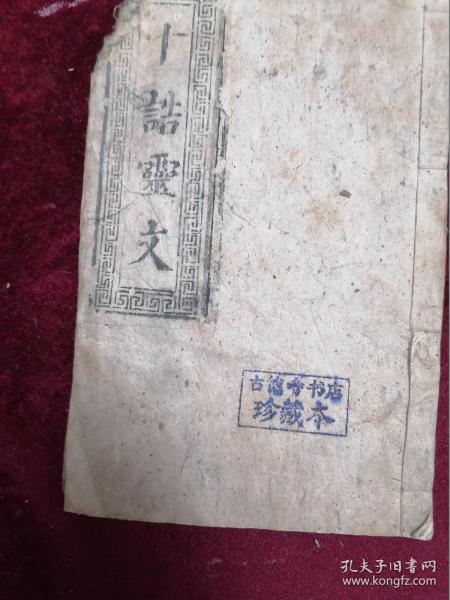 十誥靈文
古德寺书店
珍藏本
孔夫子旧书网
www.kongfz.com